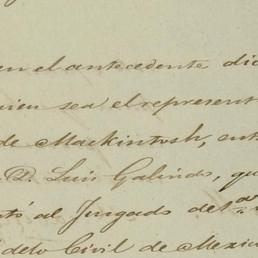 en el antecedente dic
uien sea el represent
de Mackintosh, ent
D. Luis Galindo, qu
tó al Juzgado del
delo Civil de Mexic